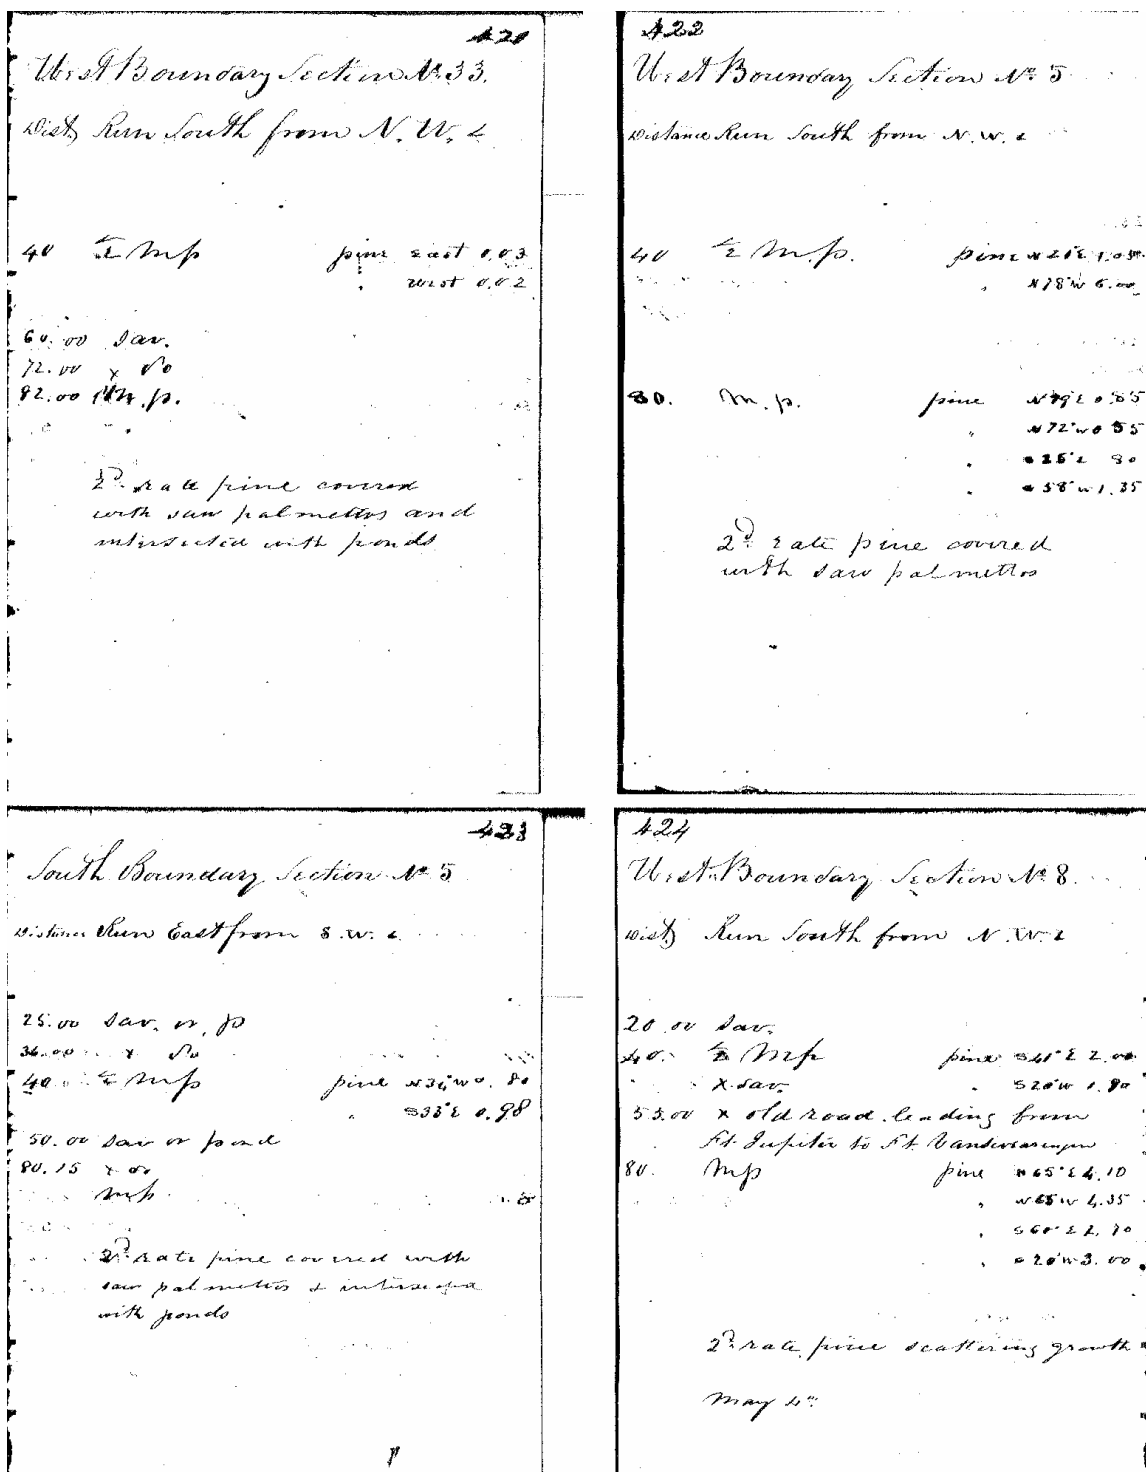 421
West Boundary Section No 33.
Dist. Run South from N. W. c
40 ½ M p pine east 0.03
" west 0.02
60.00 Sav.
72.00 x do
82.00 M. p.
2d rate pine covered
with saw palmettos and
intersected with ponds
422
West Boundary Section No 5
Distance Run South from N. W. c
40 ½ M. p. pine N 21°E
" N78°W 6.00
80. M. p. pine N79°E 0.85
" N72°W 0 55
" 25°E 80
" 58°W 1.35
2d rate pine covered
with saw palmettos
423
South Boundary Section No 5
Distance Run East from S. W. c
25.00 Sav. or p
36.00 x do
40. ½ M p pine W 0. 80
" S33°E 0.98
50.00 Sav or pond
80.15 x do
M p.
2d rate pine covered with
saw palmettos & intersected
with ponds
424
West Boundary Section No 8.
Dist. Run South from N. W. c
20.00 Sav.
40. ½ M p pine S41°E 2.00
X Sav. " S20°W 1.80
53.00 x old road leading from
Ft. Jupiter to Ft.
80. M p pine N65°E 4.10
" N65W 4.35
" S60°E 2.70
" 20°W 3.00
2d rate pine scattering growth
May 4th